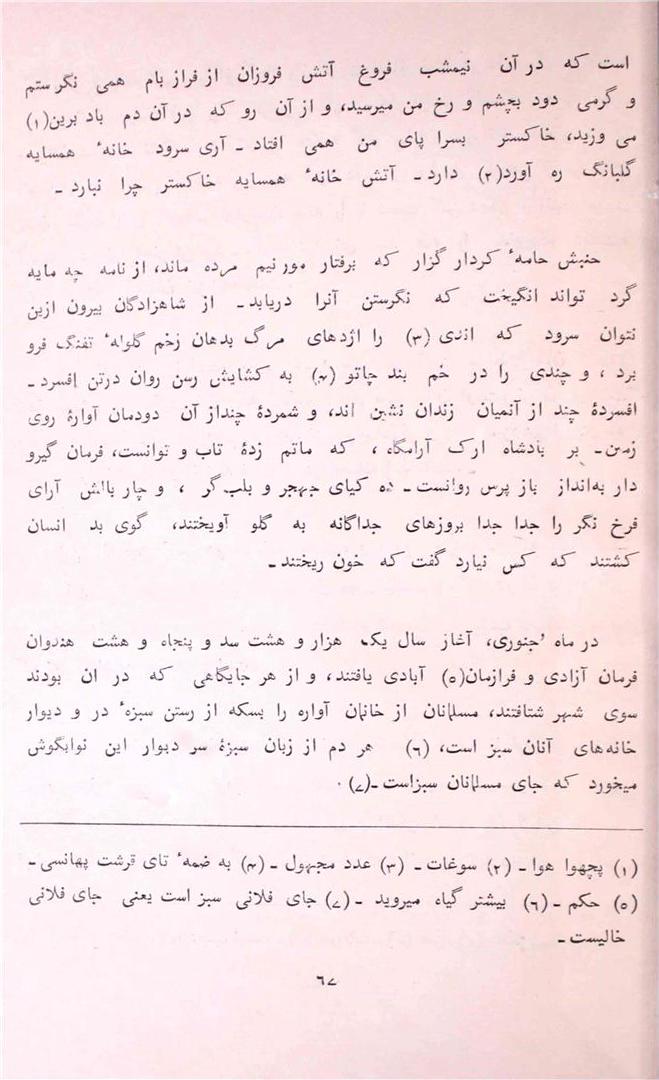 است که در آن نیمشب فروغ آتش فروزان از فراز بام همی نگرستم
و گرمی دود بچشم و رخ من میرسید، و از آن رو که در آن دم باد برین(۱)
می وزید، خاکستر بسراپای من همی افتاد ـ آری سرود خانهٔ همسایه
گلبانگ ره آورد(۲) دارد ـ آتش خانهٔ همسایه خاکستر چرا نبارد ـ
جنبش خامهٔ کردار گزار که برفتار مور نیم مرده ماند، از نامه چه مایه
گرد تواند انگیخت که نگرستن آنرا دریابد ـ از شاهزادگان بیرون ازین
نتوان سرود که اندی (۳) را اژدهای مرگ بدهان زخم گلولهٔ تفنگ فرو
برد ، و چندی را در خم بند چاتو (۴) به کشایش رسن روان در تن افسرد ـ
افسردهٔ چند از آنمیان زندان نشین اند، و شمردهٔ چند از آن دودمان آوارهٔ روی
زمین ـ بر بادشاه ارک آرامگاه ، که ماتم زدهٔ تاب و توانست، فرمان گیرو
دار به‌انداز باز پرس روانست ـ ده کیای جهجر و بلب گر ، و چار بالش آرای
فرخ نگر را جدا جدا بروزهای جداگانه به گلو آویختند، گوی بد انسان
کشتند که کس نیارد گفت که خون ریختند ـ
در ماه جنوری، آغاز سال یک هزار و هشت سد و پنجاه و هشت هندوان
فرمان آزادی و فرازمان(۵) آبادی یافتند، و از هر جایگاهی که در ان بودند
سوی شهر شتافتند، مسلمانان از خانان آواره را بسکه از رستن سبزهٔ در و دیوار
خانه‌های آنان سبز است، (۶) هر دم از زبان سبزهٔ سر دیوار این نوابگوش
میخورد که جای مسلمانان سبزاست ـ(۷)
(۱) پچهوا هوا ـ (۲) سوغات ـ (۳) عدد مجهول ـ (۴) به ضمهٔ تای قرشت پهانسی ـ
(۵) حکم ـ (۶) بیشتر گیاه میروید ـ (۷) جای فلانی سبز است یعنی جای فلانی
خالیست ـ
۶۷